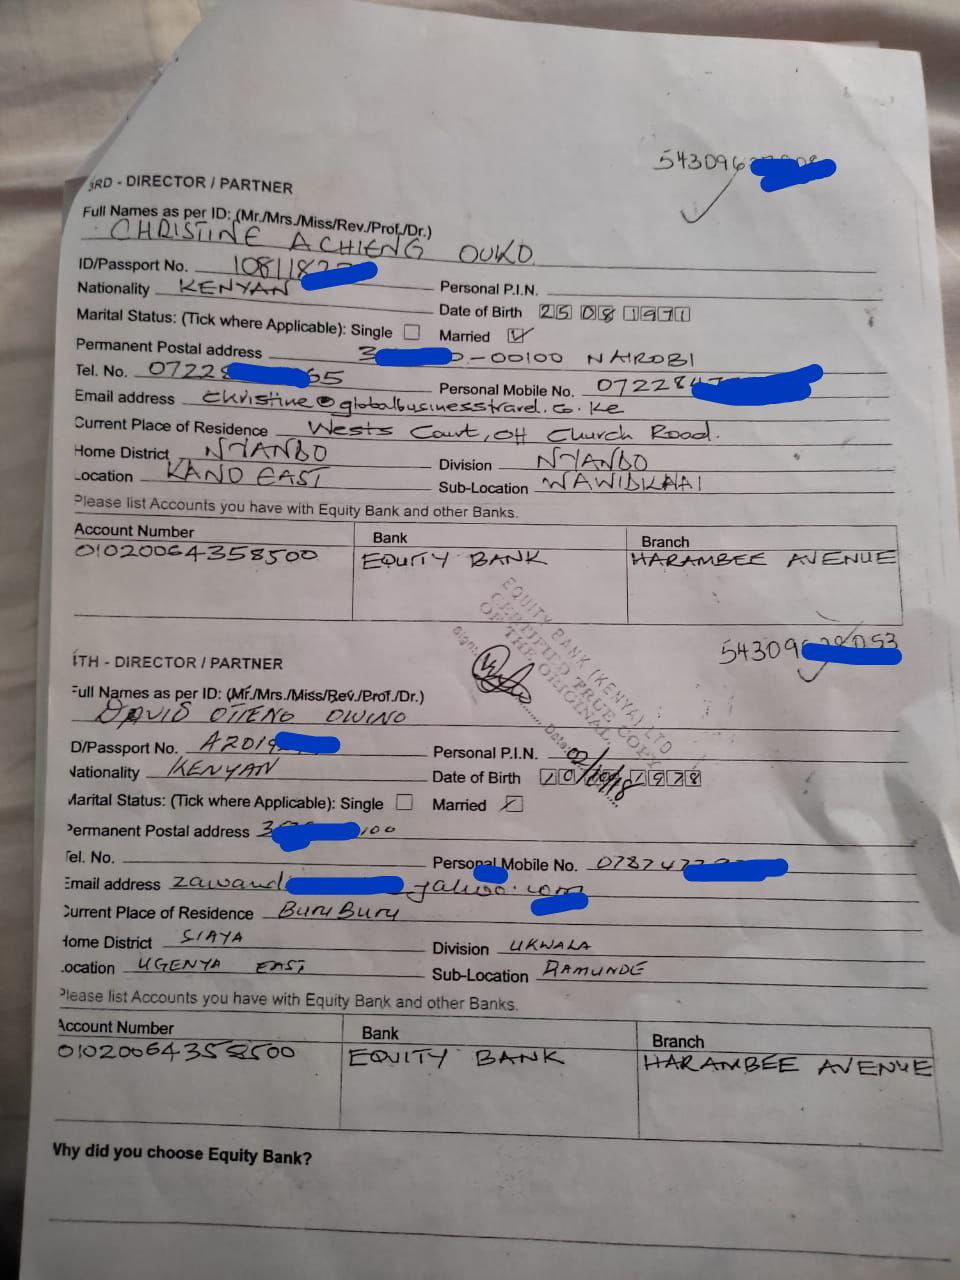 3RD - DIRECTOR / PARTNER
543096
Full Names as per ID: (Mr./Mrs./Miss/Rev./Prof./Dr.)
CHRISTINE ACHIENG OUKO
ID/Passport No. 108118
Personal P.I.N.
Nationality KENYAN
Date of Birth 25 08 1971
Marital Status: (Tick where Applicable): Single Married
Permanent Postal address 3 -00100 NAIROBI
Tel. No. 0722 65 Personal Mobile No. 072284
Email address christine@globalbusinesstravel.co.ke
Current Place of Residence Wests Court, Off Church Road.
Home District NYANDO Division NYANDO
Location KANO EAST Sub-Location
Please list Accounts you have with Equity Bank and other Banks.
Account Number Bank Branch
01020064358500 EQUITY BANK HARAMBEE AVENUE
EQUITY BANK (KENYA) LTD
CERTIFIED TRUE COPY
OF THE ORIGINAL
Sign: Date: 02/10/18
54309 053
4TH - DIRECTOR / PARTNER
Full Names as per ID: (Mr./Mrs./Miss/Rev./Prof./Dr.)
DAVID OTIENO OWINO
ID/Passport No. A2019 Personal P.I.N.
Nationality KENYAN Date of Birth 10 1978
Marital Status: (Tick where Applicable): Single Married
Permanent Postal address 3 100
Tel. No. Personal Mobile No. 078747
Email address zawand yahoo.com
Current Place of Residence Buru Buru
Home District SIAYA Division UKWALA
Location UGENYA EAST Sub-Location RAMUNDE
Please list Accounts you have with Equity Bank and other Banks.
Account Number Bank Branch
01020064358500 EQUITY BANK HARAMBEE AVENUE
Why did you choose Equity Bank?